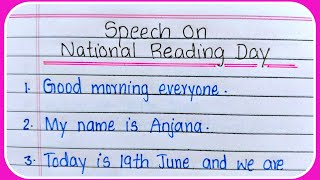 Speech On
National Reading Day
1. Good morning everyone.
2. My name is Anjana.
3. Today is 19th June and we are